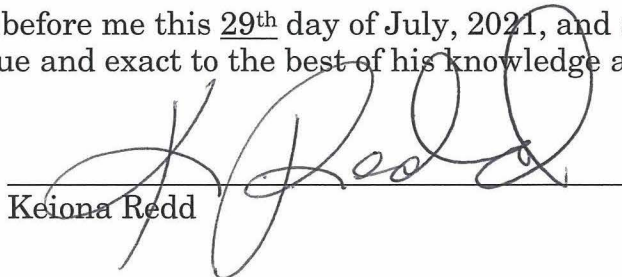 before me this 29th day of July, 2021, and
ue and exact to the best of his knowledge a
K Redd
Keiona Redd